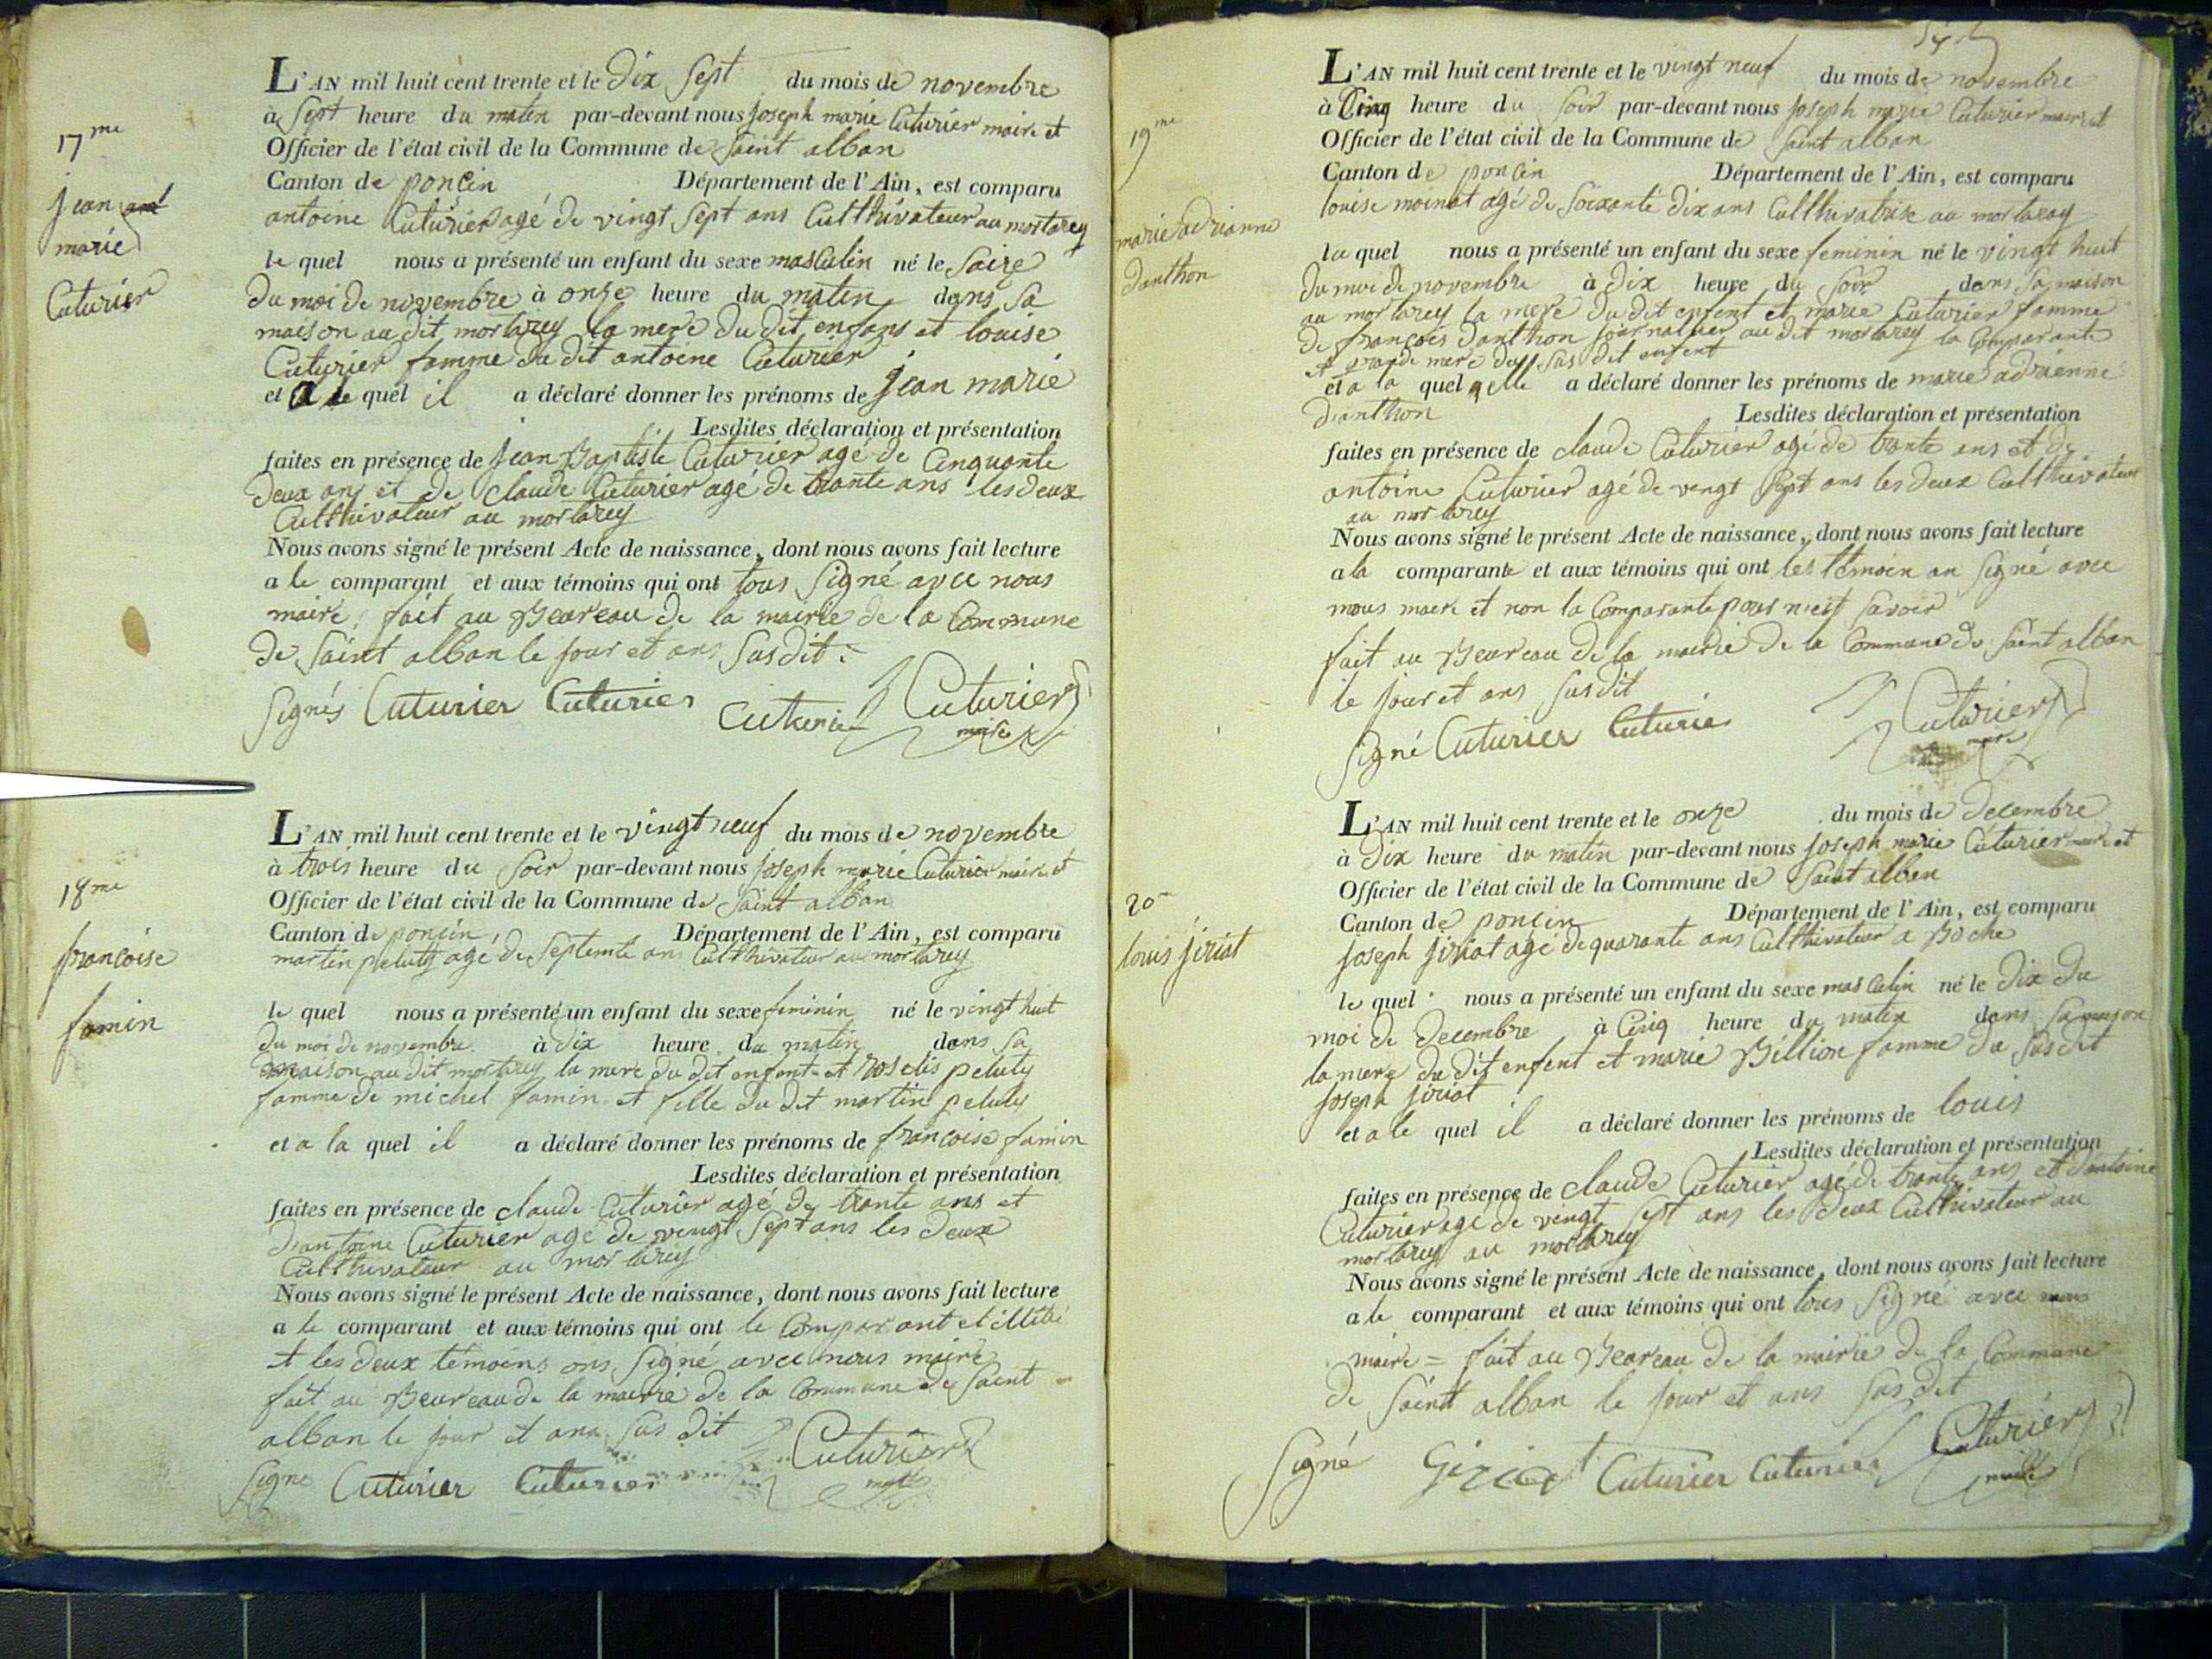 17me
jean
marie
Cuturier
L'AN mil huit cent trente et le dix Sept du mois de novembre
à Sept heure du matin par-devant nous joseph marie Cuturier maire et
Officier de l'état civil de la Commune de Saint alban
Canton de poncin Département de l'Ain, est comparu
antoine Cuturier agé de vingt Sept ans Culthivateur au mortarey
le quel nous a présenté un enfant du sexe masculin né le Saize
du moi de novembre à onze heure du matin dans Sa
maison au dit mortarey la mere du dit enfans et louise
Cuturier famme du dit antoine Cuturier
et a le quel il a déclaré donner les prénoms de jean marie
Lesdites déclaration et présentation
faites en présence de jean Baptiste Cuturier agé de Cinquante
deux ans et de Claude Cuturier agé de trante ans les deux
Culthivateur au mortarey
Nous avons signé le présent Acte de naissance, dont nous avons fait lecture
a le comparant et aux témoins qui ont tous Signé avec nous
maire, fait au Beareau de la mairie de la Commune
de Saint alban le jour et ans Susdit
Signés Cuturier Cuturier Cuturier Cuturier
maire
18me
francoise
famin
L'AN mil huit cent trente et le vingt neuf du mois de novembre
à trois heure du Soir par-devant nous joseph marie Cuturier maire et
Officier de l'état civil de la Commune de Saint alban
Canton de poncin, Département de l'Ain, est comparu
martin peluty agé de Septemte ans Culthivateur au mortarey
le quel nous a présenté un enfant du sexe feminin né le vingt huit
du moi de novembre à dix heure du matin dans Sa
maison au dit mortarey la mere du dit enfant et roselis peluty
famme de michel famin et fille du dit martin peluty
et a la quel il a déclaré donner les prénoms de francoise famin
Lesdites déclaration et présentation
faites en présence de claude Cuturier agé de trante ans et
d'antoine Cuturier agé de vingt Sept ans les deux
Culthivateur au mortarey
Nous avons signé le présent Acte de naissance, dont nous avons fait lecture
a le comparant et aux témoins qui ont le Comparant et illitéi
et les deux témoins ons Signé avec nous maire
fait au Beureau de la mairie de la Commune de Saint
alban le jour et ans Sus dit
Signe Cuturier Cuturier Cuturier
19me
marie adrianne
danthon
L'AN mil huit cent trente et le vingt neuf du mois de novembre
à Cinq heure du Soir par-devant nous joseph marie Cuturier maire et
Officier de l'état civil de la Commune de Saint alban
Canton de poncin Département de l'Ain, est comparu
louise moinat agé de Soixante dix ans Culthivatrise au mortarey
la quel nous a présenté un enfant du sexe feminin né le vingt huit
du moi de novembre à dix heure du Soir dans Sa maison
au mortarey la mere du dit enfent et marie Cuturier famme
de françois danthon journalier au dit mortarey la Comparante
et grande mere du Sus dit enfent
et a la quel elle a déclaré donner les prénoms de marie adrienne
danthon Lesdites déclaration et présentation
faites en présence de claude Cuturier agé de trante ans et de
antoine Cuturier agé de vengt Sept ans les deux Culthivateur
au mortarey
Nous avons signé le présent Acte de naissance, dont nous avons fait lecture
a la comparante et aux témoins qui ont les témoin on Signé avec
nous maire et non la Comparante pour n'est Savoir
fait au Beureau de la mairie de la Commune de Saint alban
le jour et ans Susdit
Signé Cuturier Cuturier Cuturier
maire
20
louis jiriat
L'AN mil huit cent trente et le onze du mois de decembre
à Dix heure du matin par-devant nous joseph marie Cuturier maire et
Officier de l'état civil de la Commune de Saint alban
Canton de poncin Département de l'Ain, est comparu
joseph jiriat agé de quarante ans Culthivateur a Boche
le quel nous a présenté un enfant du sexe masculin né le dix du
moi de decembre à Cinq heure du matin dans Sa maison
la mere du dit enfent et marie Billion famme du Susdit
joseph jiriat
et a le quel il a déclaré donner les prénoms de louis
Lesdites déclaration et présentation
faites en présence de claude Cuturier agé de trante ans et d'antoine
Cuturier agé de vingt Sept ans les deux Culthivateur au
mortarey au mortarey
Nous avons signé le présent Acte de naissance, dont nous avons fait lecture
a le comparant et aux témoins qui ont tous Signé avec nous
maire = fait au Beareau de la mairie de la Commune
de Saint alban le jour et ans Sus dit
Signé Giriat Cuturier Cuturier Cuturier
maire